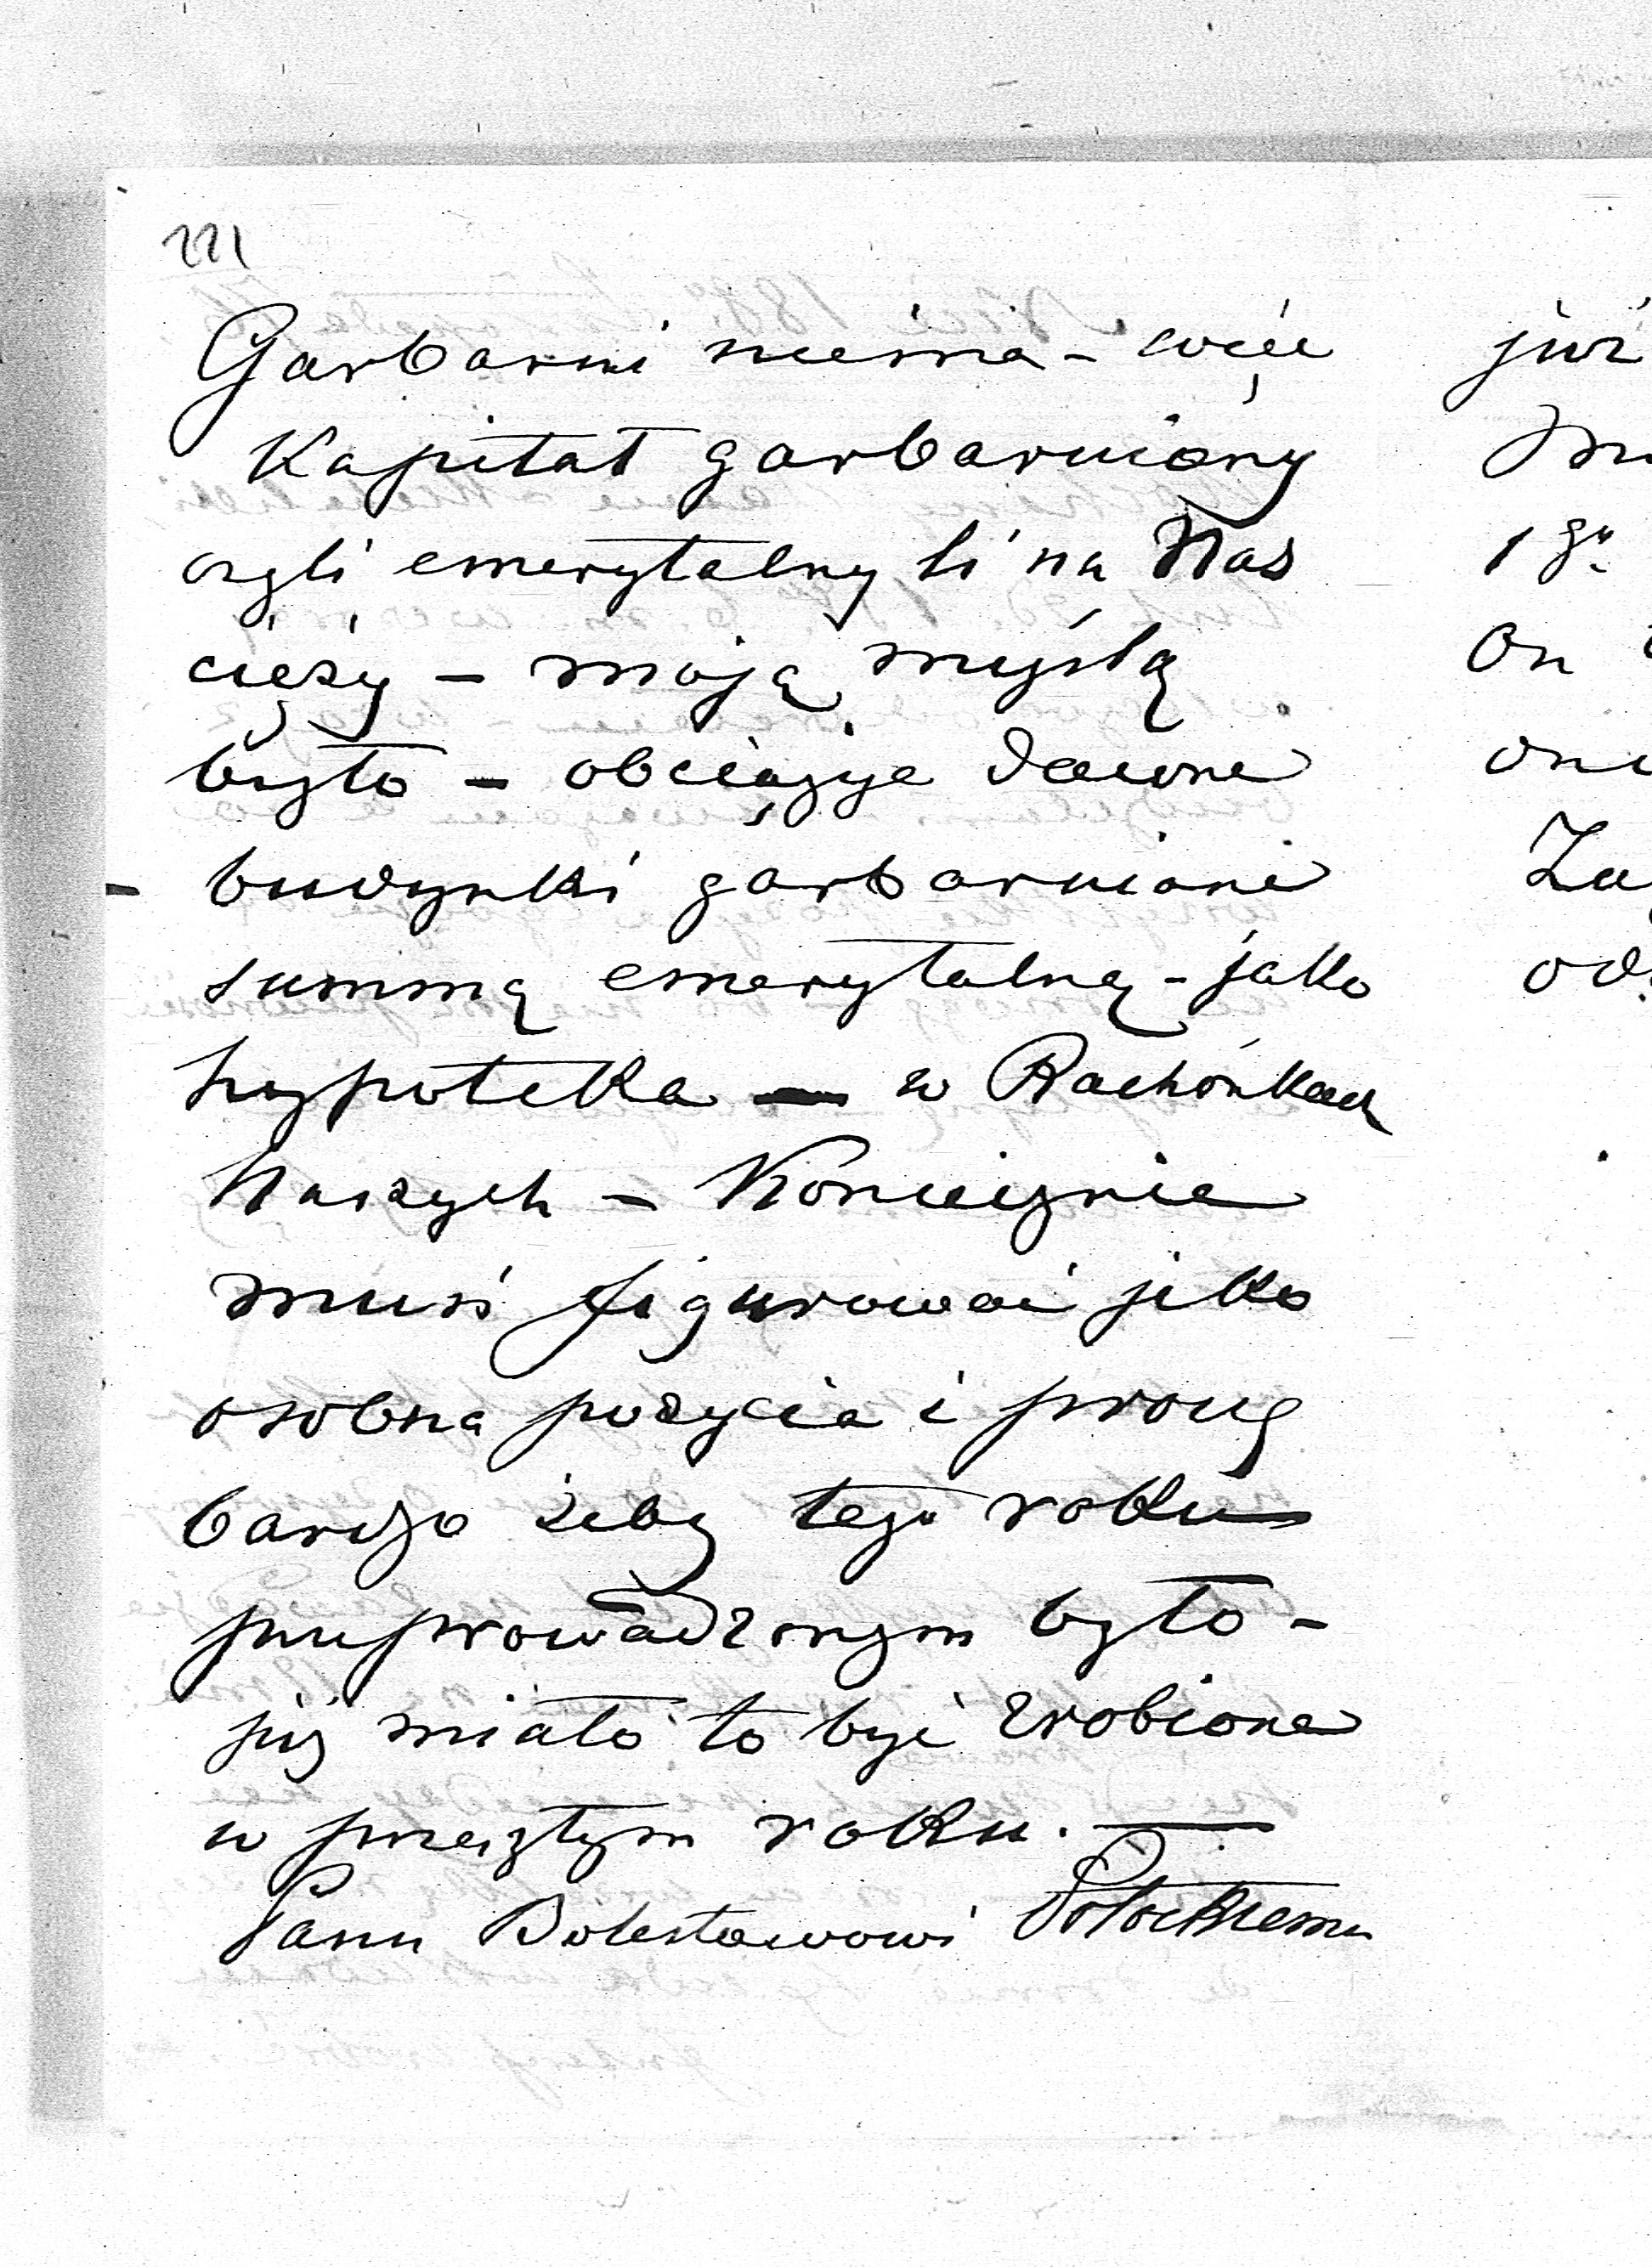 221
Garbarni niema - więc
Kapitał garbarniany
czyli emerytalny li na Nas
cięży - moją myślą
było - obciążyć dawne
- budynki garbarniane
summą emerytalną - jako
hypoteka — w Rachónkach
Naszych - Koniecznie
musi figurować jako
osobna pozycia i proszę
bardzo żeby tego roku
przeprowadzonym było -
już miało to być zrobione
w przeszłym roku. —
Panu Bolesławowi Potockiemu
już
1go
On
Za
od